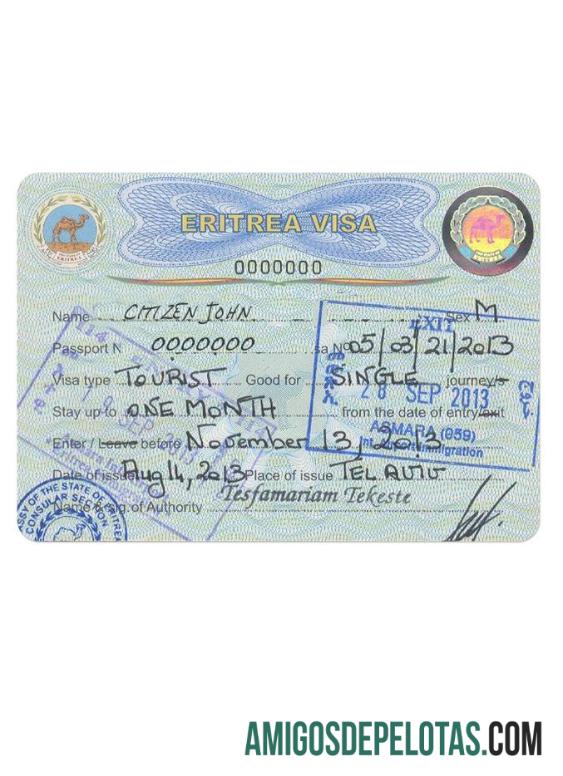 ERITREA VISA
0000000
Name CITIZEN JOHN Sex M
Passport N 0000000 sa No 05/03/21/2013
Visa type TOURIST Good for SINGLE journey/s
Stay up to ONE MONTH from the date of entry/exit
*Enter / Leave before November 13, 2013
Date of issue Aug 14, 2013 Place of issue TEL AVIV
Name & sig. of Authority Tesfamariam Tekeste
EXIT
28 SEP 2013
ASMARA (059)
Immigration
SEP
EMBASSY OF THE STATE OF ERITREA
CONSULAR SECTION
AMIGOSDEPELOTAS.COM